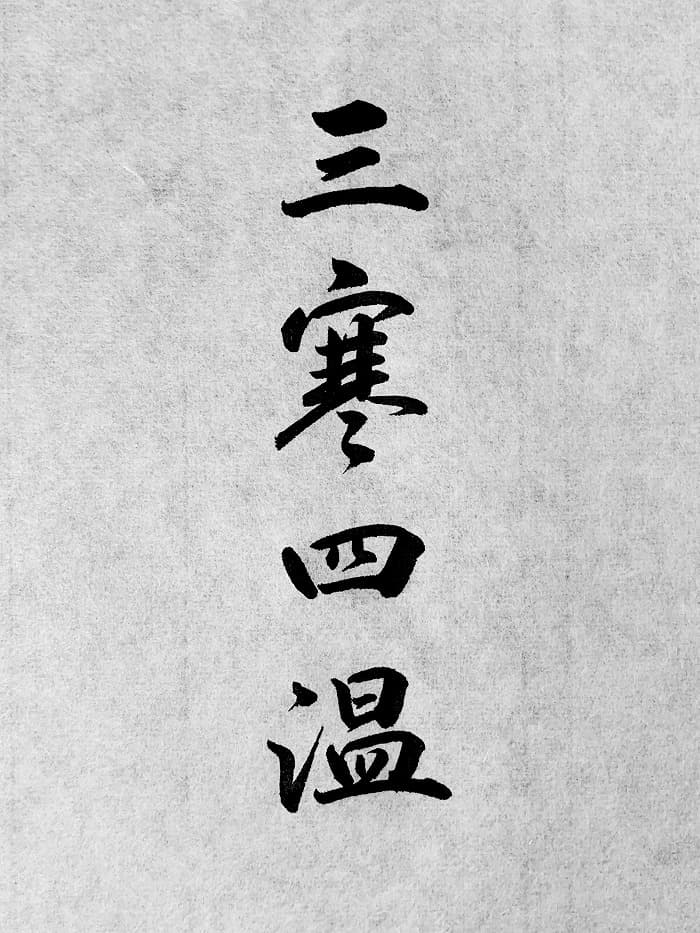 三寒四温